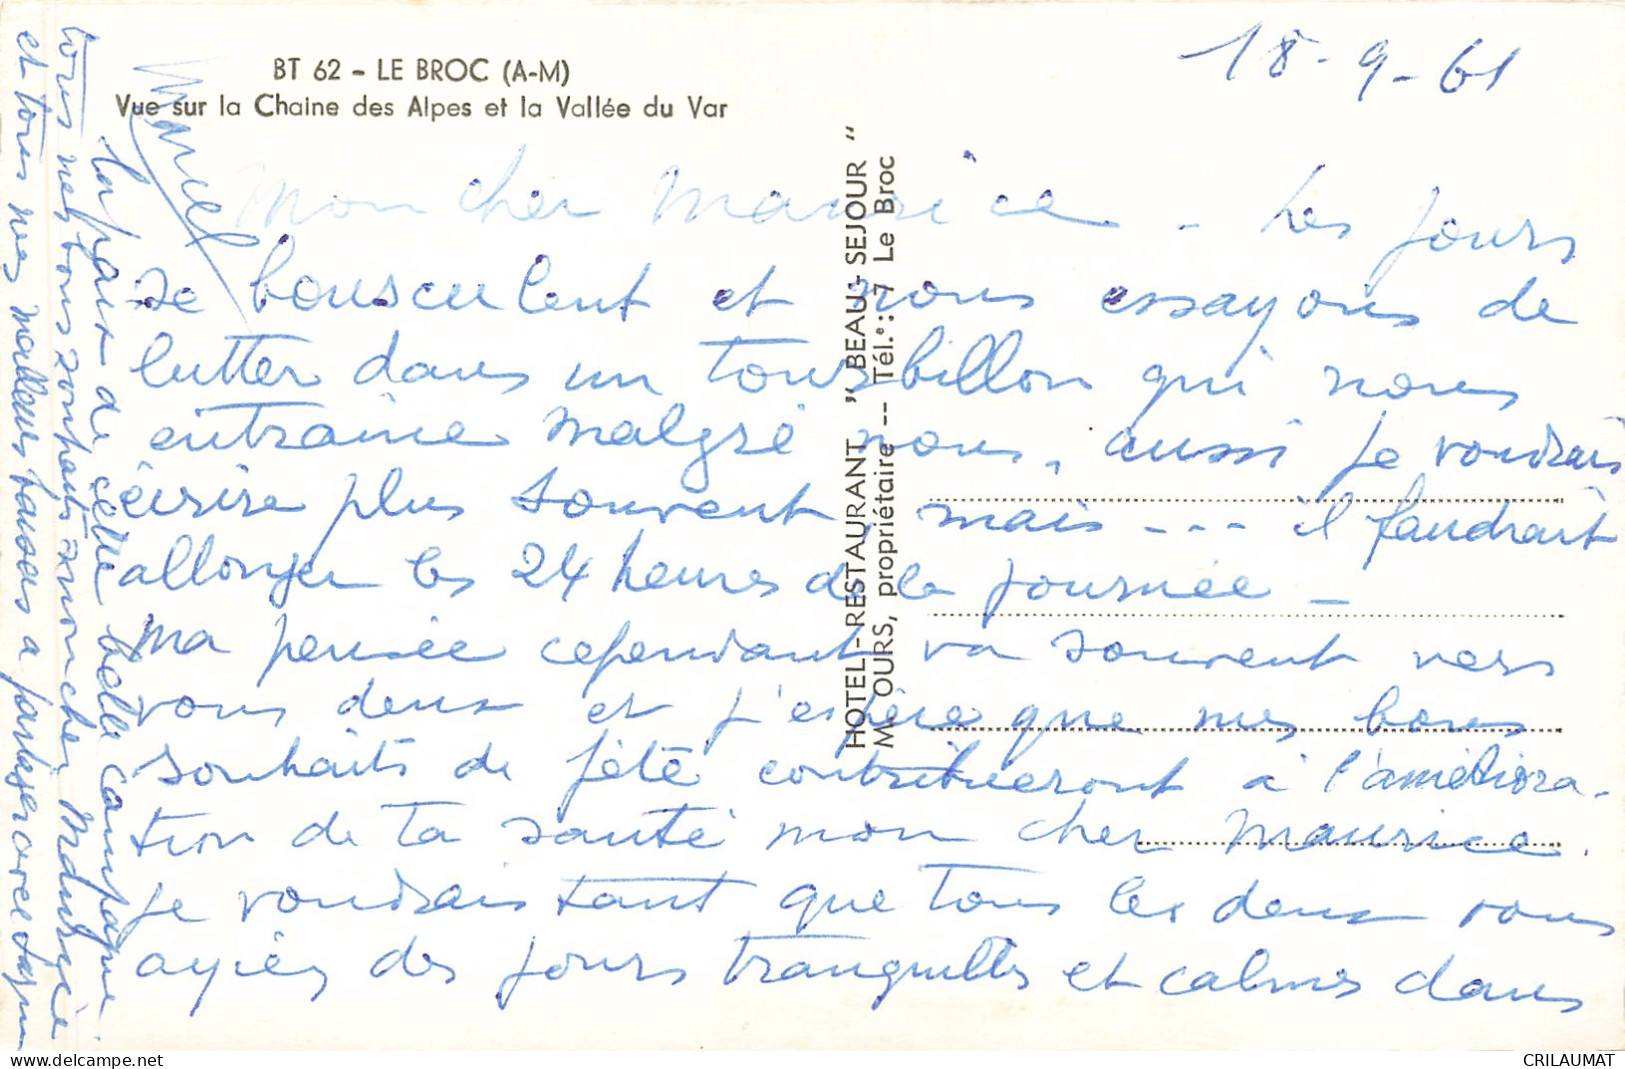 BT 62 - LE BROC (A-M)
Vue sur la Chaine des Alpes et la Vallée du Var
18-9-61
HOTEL-RESTAURANT " BEAU-SEJOUR "
M. OURS, propriétaire -- Tél.: 7 Le Broc
Mon cher Maurice - Les jours
se bousculent et nous essayons de
lutter dans un tourbillon qui nous
entraine malgré nous, aussi je voudrais
écrire plus souvent, mais --- il faudrait
allonger les 24 heures de la journée -
Ma pensée cependant va souvent vers
vous deux et j'espère que mes bons
souhaits de fête contribueront à l'améliora-
tion de ta santé mon cher Maurice.
je voudrais tant que tous les deux vous
ayiez des jours tranquilles et calmes dans
la paix de cette belle campagne.
tous mes bons souhaits mon cher Maurice
et tous mes meilleurs baisers a partager avec
Marcel
CRILAUMAT